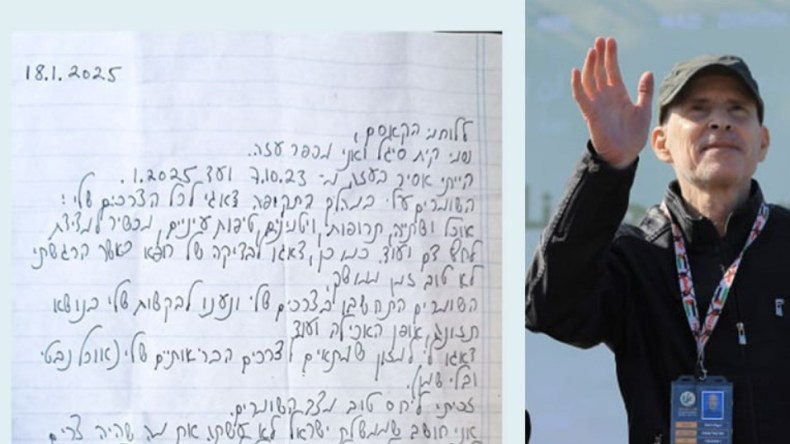 18.1.2025
ללוחמי הקאסם,
שמי קית סיגל ואני מכפר עזה.
הייתי אסיר בעזה מ-7.10.23 ועד 1.2025.
השומרים עלי במהלך התקופה דאגו לכל הצרכים שלי:
אוכל ושתיה, תרופות, ויטמינים, טיפות עיניים, מכשיר למדידת
לחץ דם ועוד. כמו כן, דאגו לבדיקה של רופא כאשר הרגשתי
לא טוב זמן ממושך.
השומרים התחשבו בצרכים שלי ונענו לבקשות שלי בנושא
תזונה, אופן האכילה ועוד
דאגו לי למזון שמתאים לצרכים הבריאותיים שלי (אוכל נבטי
ובלי שמן).
זכיתי ליחס טוב מצד השומרים.
אני חושב שממשלת ישראל לא עשתה את מה שהיה צריך